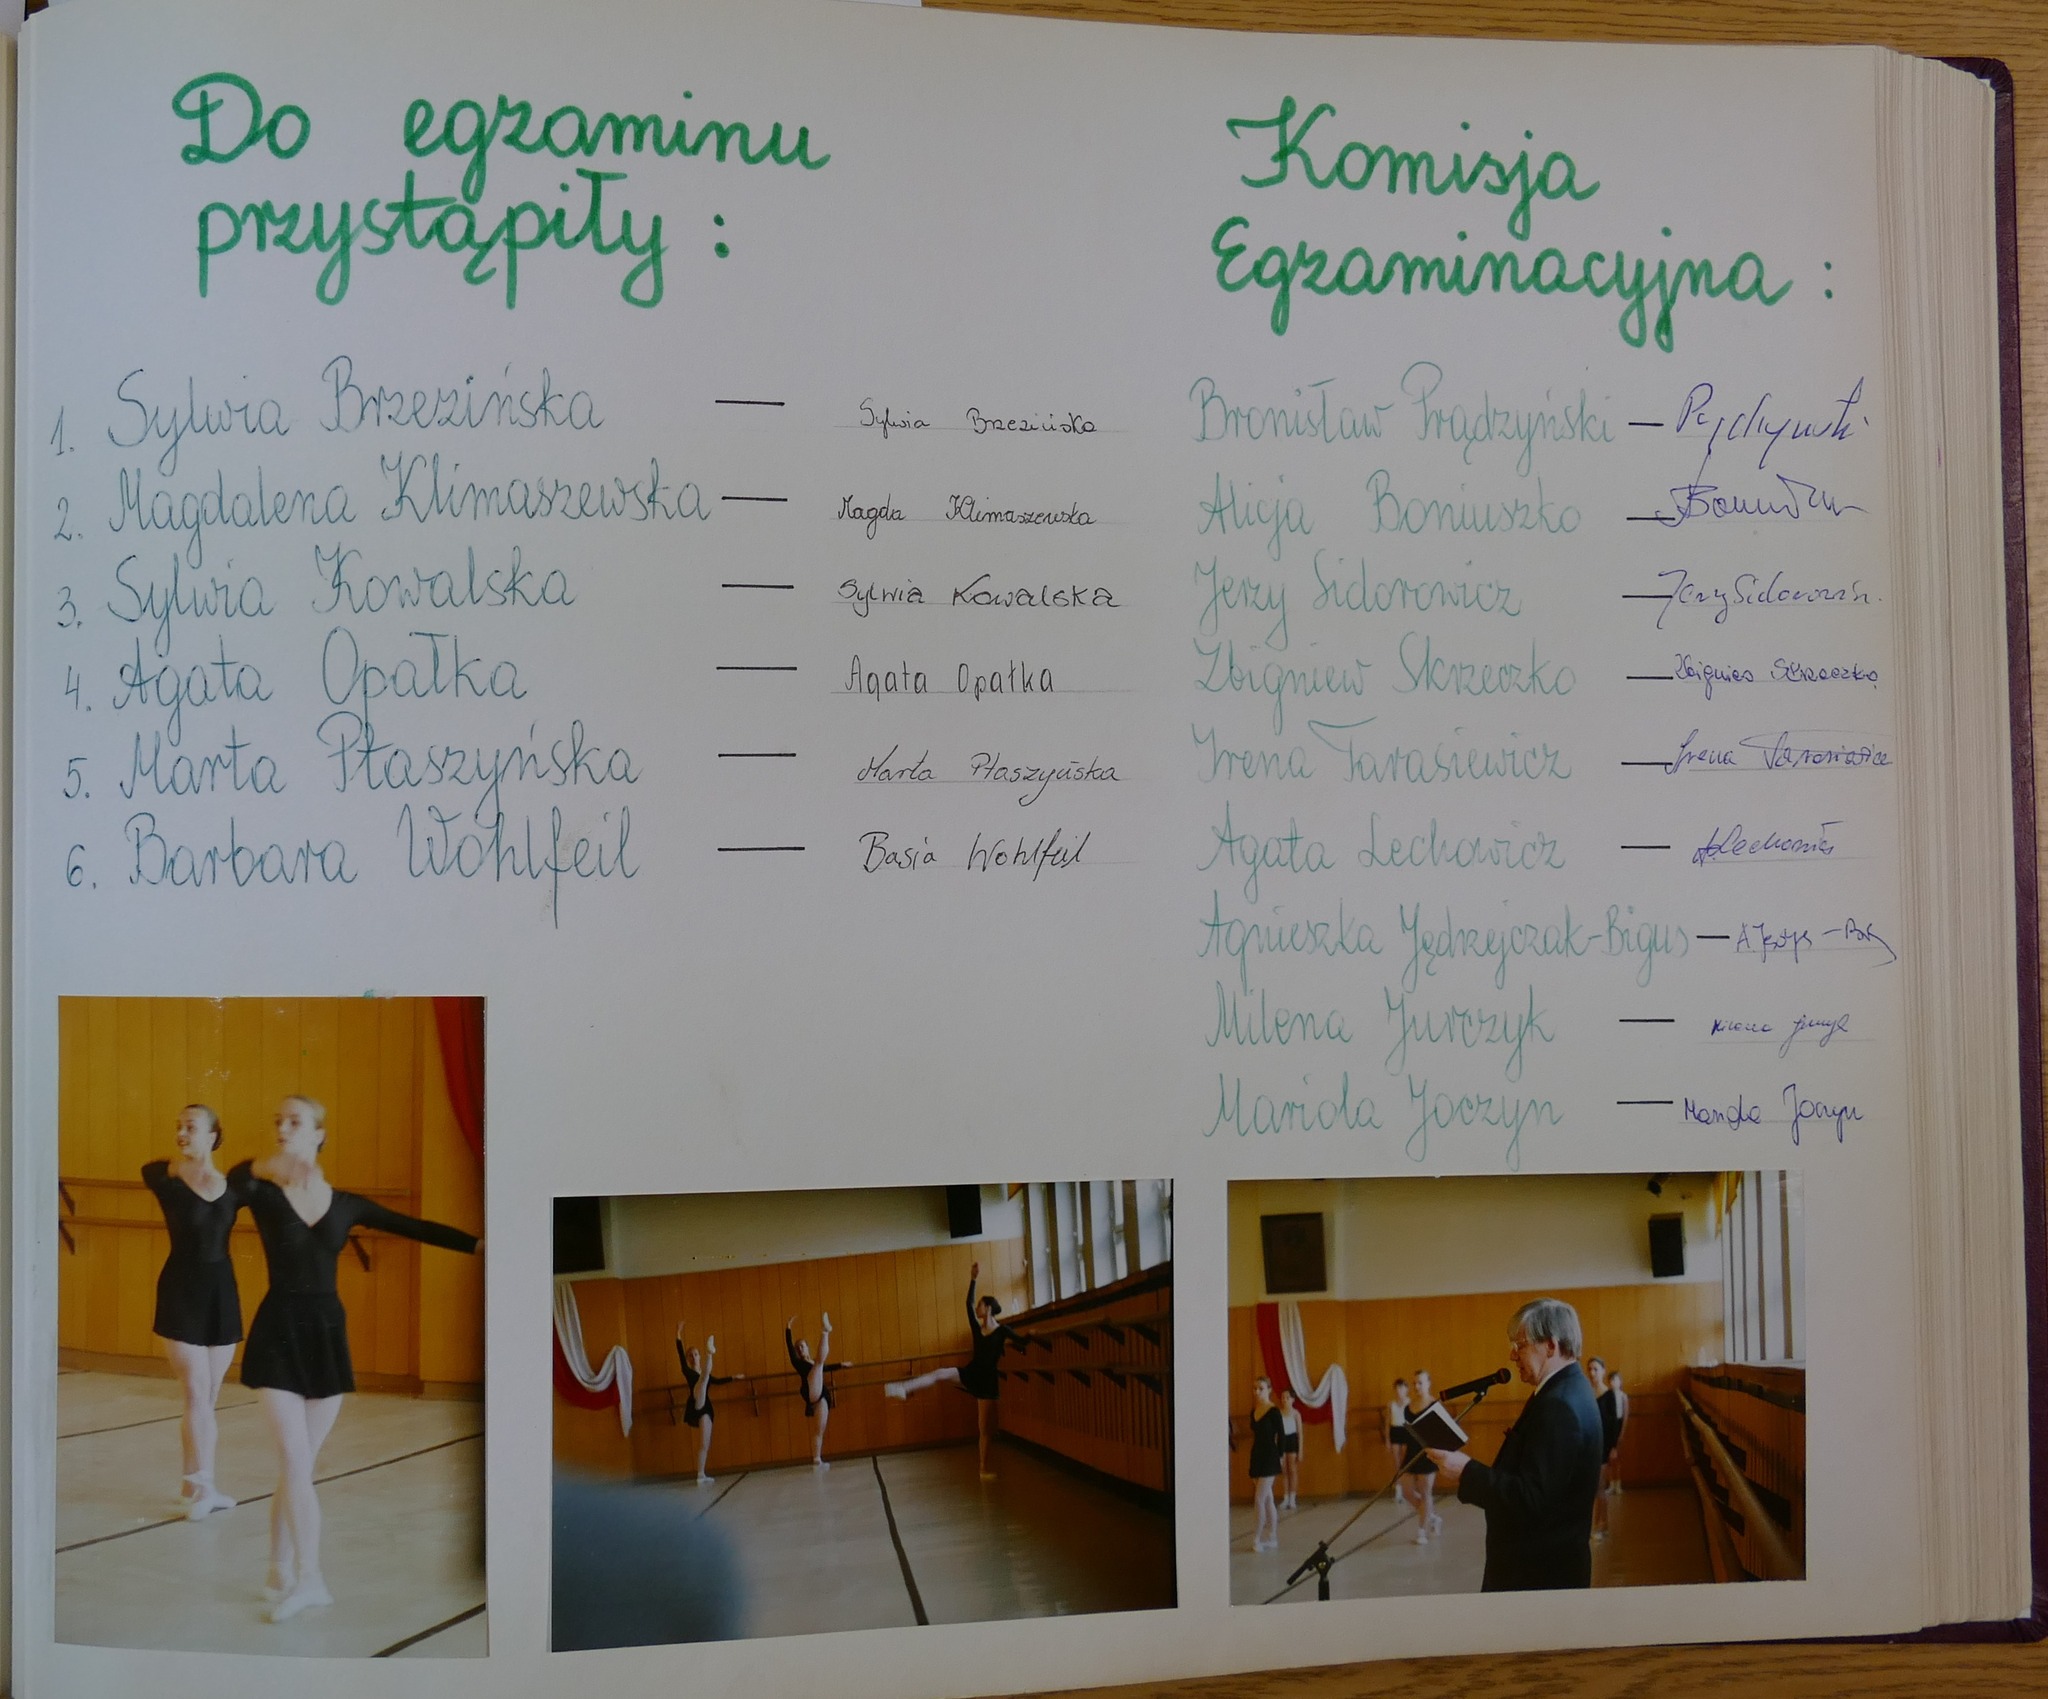 Do egzaminu
przystąpiły :
1. Sylwia Brzezińska — Sylwia Brzezińska
2. Magdalena Klimaszewska — Magda Klimaszewska
3. Sylwia Kowalska — Sylwia Kowalska
4. Agata Opałka — Agata Opałka
5. Marta Ptaszyńska — Marta Ptaszyńska
6. Barbara Wohlfeil — Basia Wohlfeil
Komisja
Egzaminacyjna :
Bronisław Prądzyński —
Alicja Boniuszko —
Jerzy Sidorowicz — Jerzy Sidorowicz
Zbigniew Skrzeczko — Zbigniew Skrzeczko
Irena Tarasiewicz — Irena Tarasiewicz
Agata Lechowicz — A. Lechowicz
Agnieszka Jędrzejczak-Bigus —
Milena Jurczyk — Milena
Mariola Joczyn — Mariola Joczyn